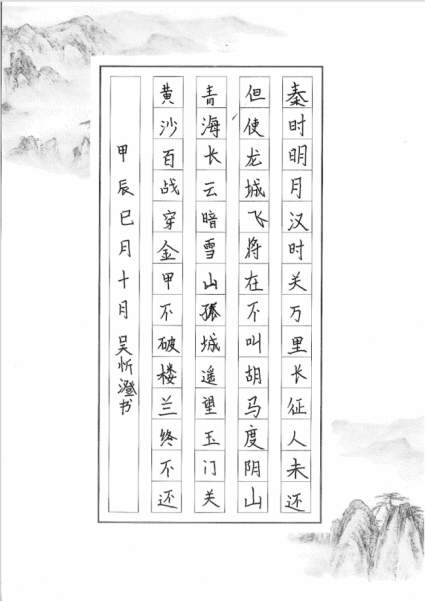 秦时明月汉时关万里长征人未还
但使龙城飞将在不叫胡马度阴山
青海长云暗雪山孤城遥望玉门关
黄沙百战穿金甲不破楼兰终不还
甲辰巳月十月吴忻澄书